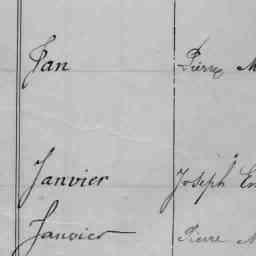 Jan Pierre M
Janvier Joseph Em
Janvier Pierre M